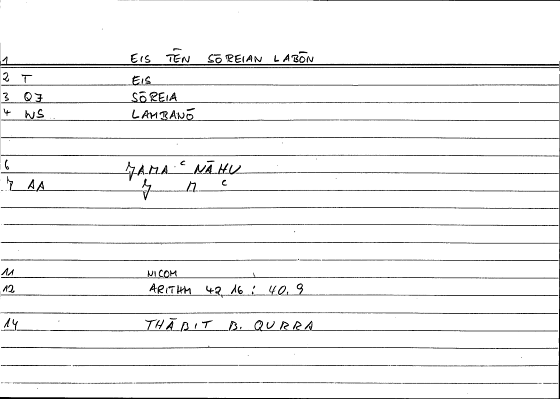 1 EIS TĒN SŌREIAN LABŌN
2 T EIS
3 QJ SŌREIA
4 WS LAMBANŌ
6 J̬AMA ᶜ NĀHU
7 AA J̬ M ᶜ
11 NICOM
12 ARITHM 42, 16 : 40, 9
14 THĀBIT B. QURRA